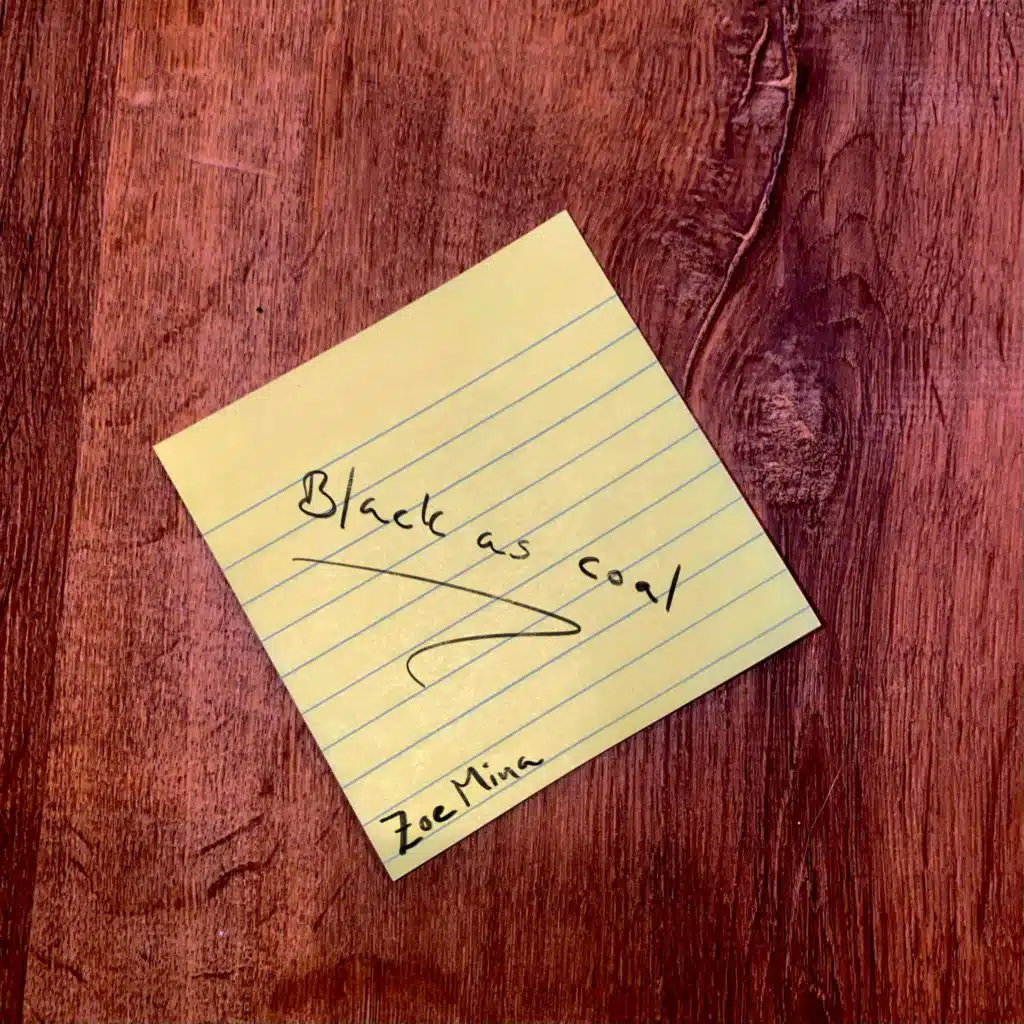 Black as coal
Zoe Mina